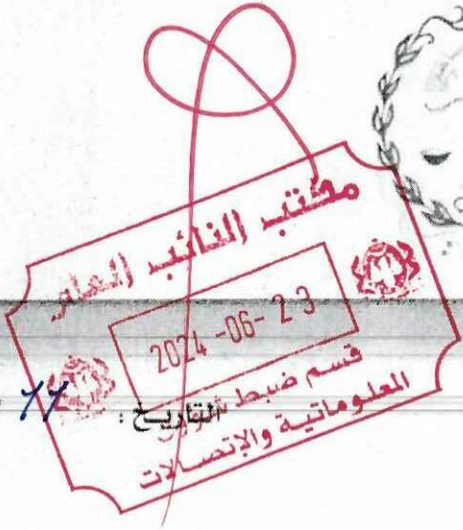 مكتب النائب العام
2024-06-23
قسم ضبط شؤون
المعلوماتية والإتصالات
التاريخ :